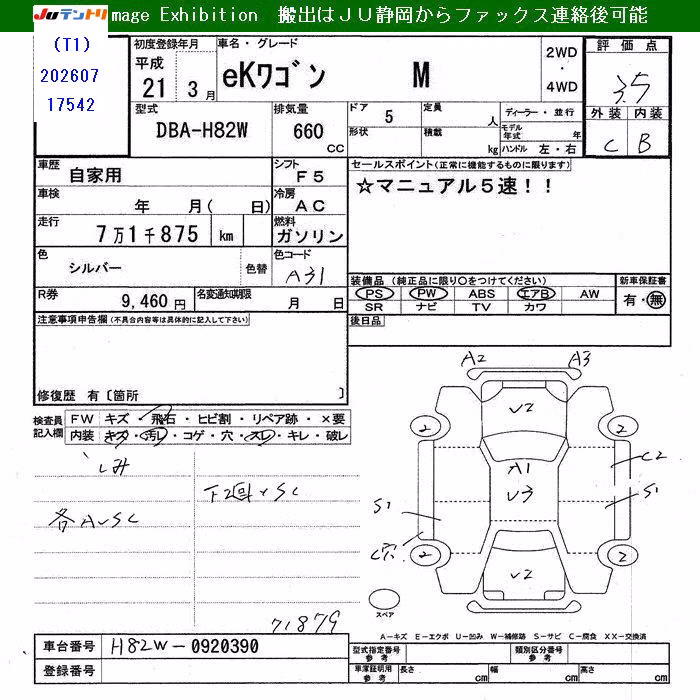 JUテントリ mage Exhibition 搬出はJU静岡からファックス連絡後可能
(T1)
202607
17542
初度登録年月
平成
21 3月
車名・グレード
eKワゴン M
2WD
・
4WD
評価点
3.5
外装 内装
C B
型式
DBA-H82W
排気量
660 CC
ドア 5
形状
定員 人
積載 kg
ディーラー・並行
モデル年式 年
ハンドル 左・右
車歴 自家用
シフト F5
車検 年 月( 日)
冷房 AC
走行 7万1千875 km
燃料 ガソリン
色 シルバー 色替
色コード A31
R券 9,460円
名変通知期限 月 日
セールスポイント(正常に機能するものに限ります)
☆マニュアル5速!!
装備品(純正品に限り○をつけてください)
PS PW ABS エアB AW
SR ナビ TV カワ
新車保証書
有・無
後日品
注意事項申告欄(不具合内容等は具体的に記入して下さい)
修復歴 有〔箇所 〕
検査員記入欄
FW キズ・飛石・ヒビ割・リペア跡・×要
内装 キズ・汚レ・コゲ・穴・スレ・キレ・破レ
シミ
下回りSC
各AVSC
71879
A2 A3
V2
2 2
A1
V3
C2
S1 S1
C穴
2 2
V2
スペア
A-キズ E-エクボ U-凹み W-補修跡 S-サビ C-腐食 XX-交換済
車台番号 H82W-0920390
登録番号
型式指定番号 参考
類別区分番号 参考
車庫証明用 参考
長さ cm 幅 cm 高さ cm